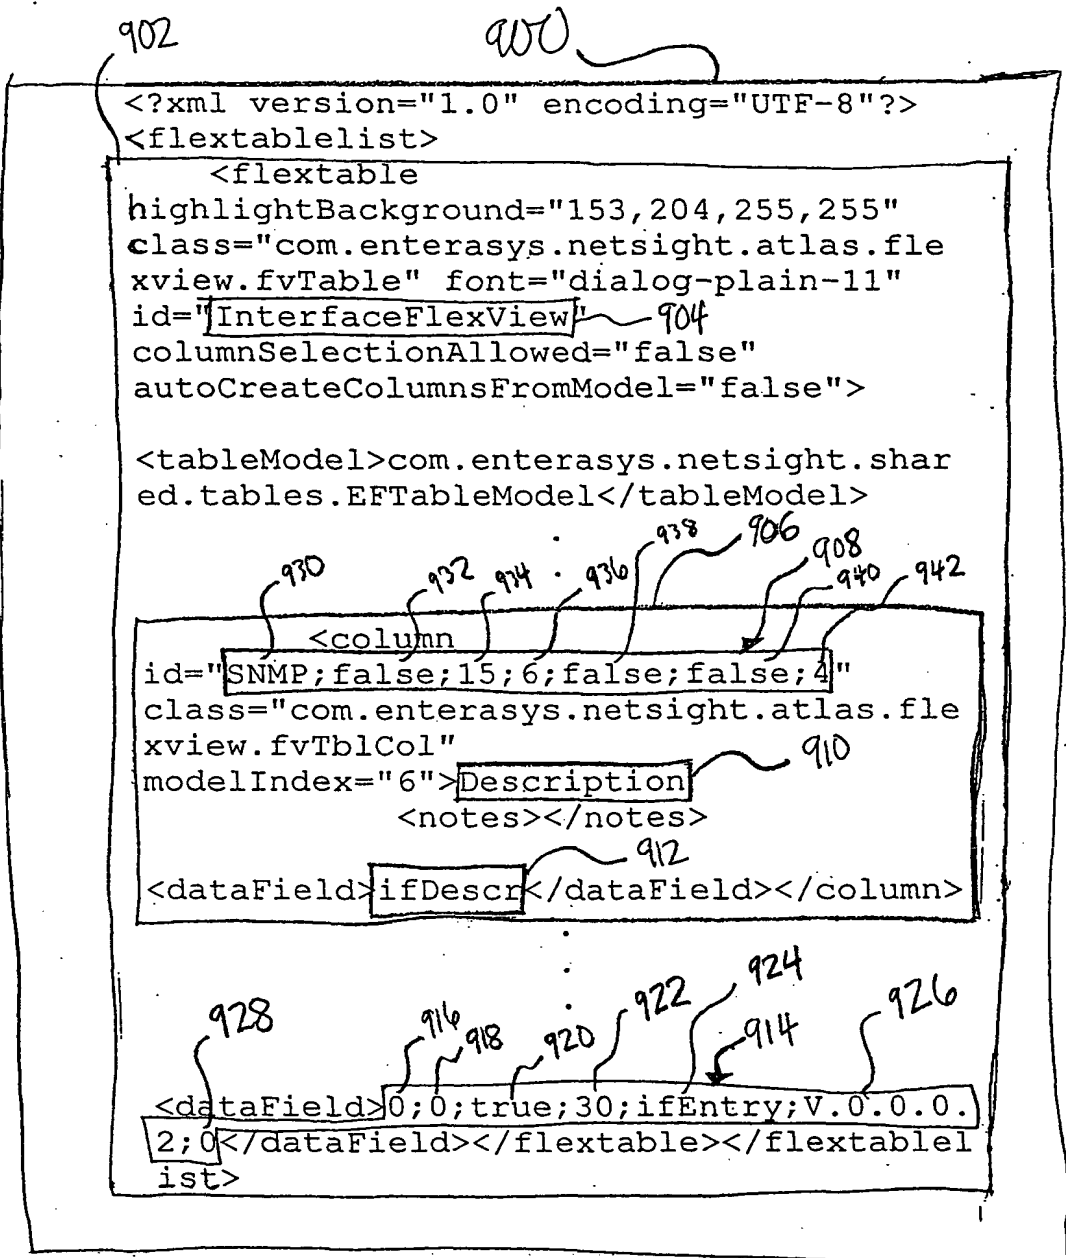 902 900
<?xml version="1.0" encoding="UTF-8"?>
<flextablelist>
<flextable
highlightBackground="153,204,255,255"
class="com.enterasys.netsight.atlas.fle
xview.fvTable" font="dialog-plain-11"
id="InterfaceFlexView" 904
columnSelectionAllowed="false"
autoCreateColumnsFromModel="false">
<tableModel>com.enterasys.netsight.shar
ed.tables.EFTableModel</tableModel>
930 932 934 936 938 906 908 940 942
<column
id="SNMP;false;15;6;false;false;4"
class="com.enterasys.netsight.atlas.fle
xview.fvTblCol"
modelIndex="6">Description 910
<notes></notes>
912
<dataField>ifDescr</dataField></column>
928 916 918 920 922 924 914 926
<dataField>0;0;true;30;ifEntry;V.0.0.0.
2;0</dataField></flextable></flextablel
ist>